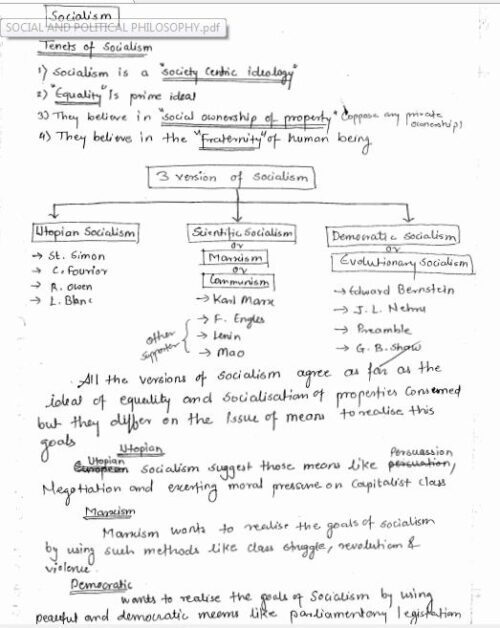 Socialism
SOCIAL AND POLITICAL PHILOSOPHY.pdf
Tenets of Socialism
1) Socialism is a "society centric ideology"
2) "Equality" is prime ideal
3) They believe in "social ownership of property" (oppose any private ownership)
4) They believe in the "Fraternity" of human being
3 version of socialism
Utopian Socialism
→ St. Simon
→ C. Fourior
→ R. Owen
→ L. Blanc
Scientific Socialism
or
Marxism
or
Communism
→ Karl Marx
→ F. Engles
→ Lenin
→ Mao
other supporter
Democratic Socialism
or
Evolutionary Socialism
→ Edward Bernstein
→ J. L. Nehru
→ Preamble
→ G. B. Shaw
All the versions of socialism agree as far as the
ideal of equality and socialisation of properties concerned
but they differ on the issue of means to realise this
goals
Utopian
Utopian European socialism suggest those means like Persuassion persuation,
Negotiation and exerting moral pressure on capitalist class
Marxism
Marxism wants to realise the goals of socialism
by using such methods like class stuggle, revolution &
violence.
Democratic
wants to realise the goals of Socialism by using
peaceful and democratic means like parliamentory legistation